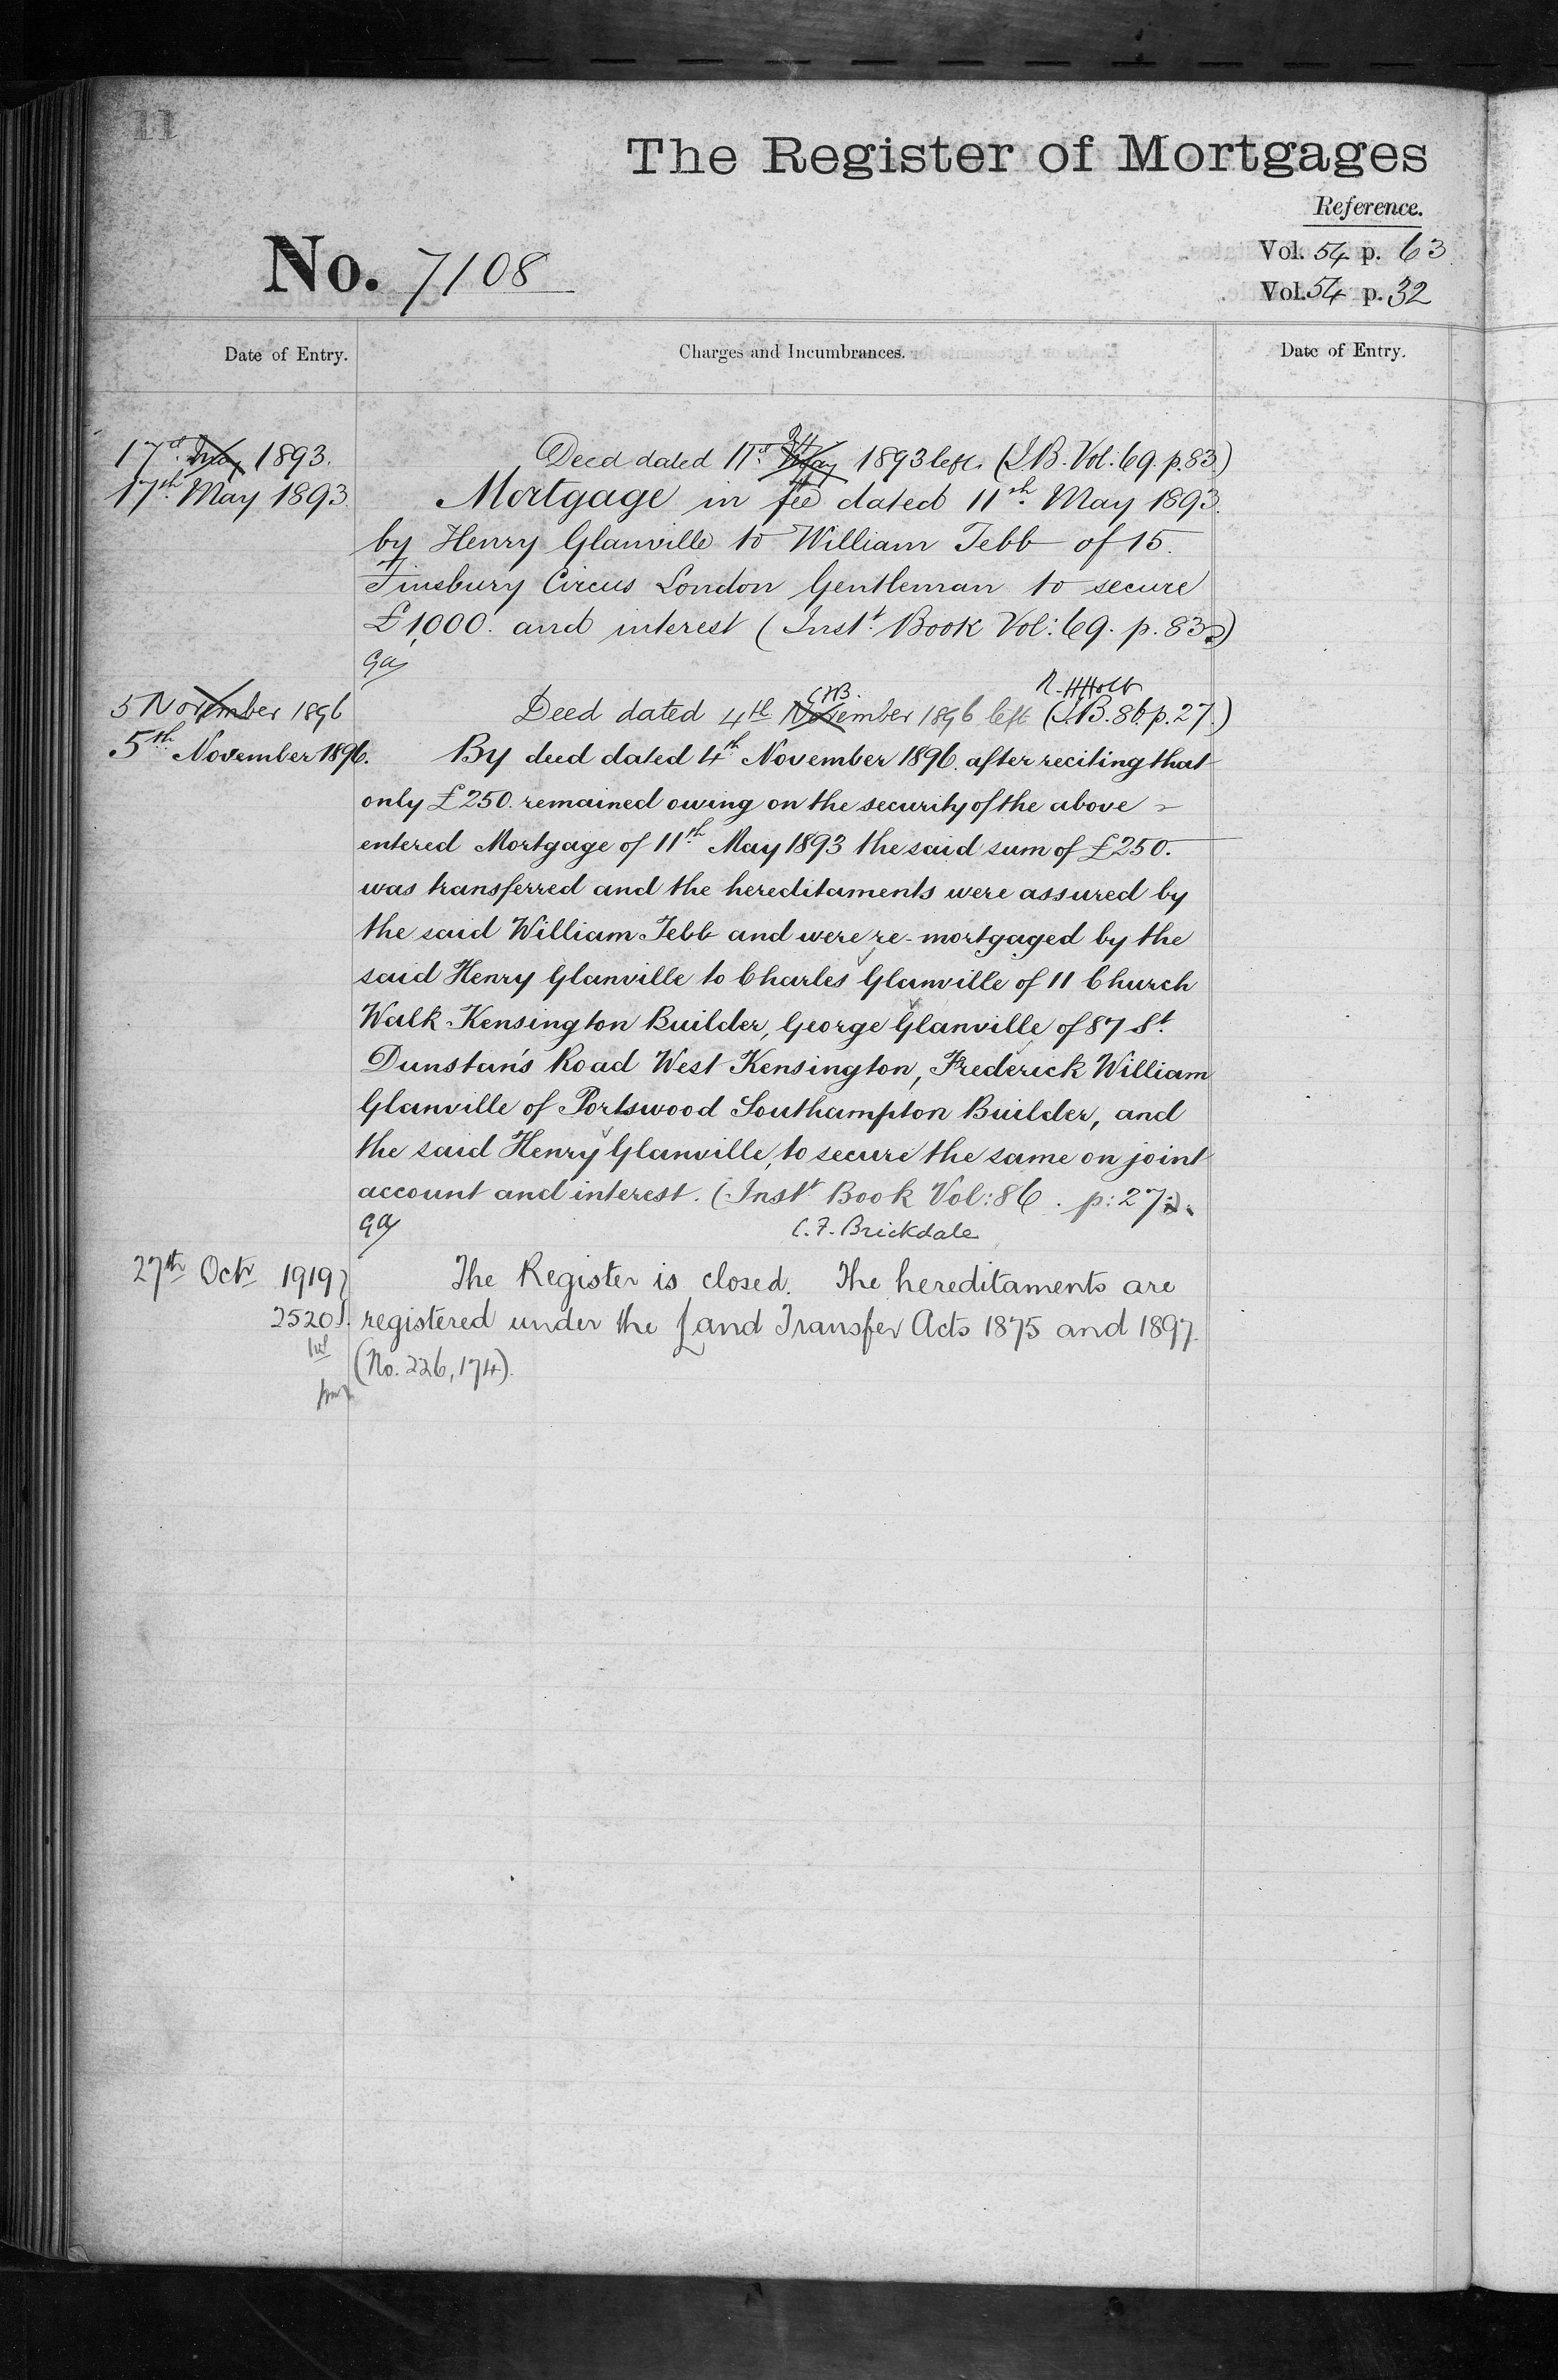 11
The Register of Mortgages
Reference.
No. 7108
Vol. 54 p. 63
Vol. 54 p. 32
Date of Entry.
Charges and Incumbrances.
Date of Entry.
17th May 1893. Deed dated 11th May 1893 left. (I.B. Vol. 69. p. 83)
17th May 1893 Mortgage in fee dated 11th May 1893.
by Henry Glanville to William Tebb of 15.
Finsbury Circus London Gentleman to secure
£1000. and interest (Inst. Book Vol: 69. p. 83.)
GA
C.F.B. R. H. Holt
5 November 1896 Deed dated 4th November 1896 left (I.B. 86. p. 27.)
5th November 1896. By deed dated 4th November 1896. after reciting that
only £250. remained owing on the security of the above
entered Mortgage of 11th May 1893 the said sum of £250.
was transferred and the hereditaments were assured by
the said William Tebb and were re-mortgaged by the
said Henry Glanville to Charles Glanville of 11 Church
Walk Kensington Builder, George Glanville of 87 St.
Dunstan's Road West Kensington, Frederick William
Glanville of Portswood Southampton Builder, and
the said Henry Glanville, to secure the same on joint
account and interest. (Inst. Book Vol: 86. p: 27.)
GA C. F. Brickdale
27th Octr 1919 The Register is closed. The hereditaments are
2520 registered under the Land Transfer Acts 1875 and 1897.
(No. 226,174).